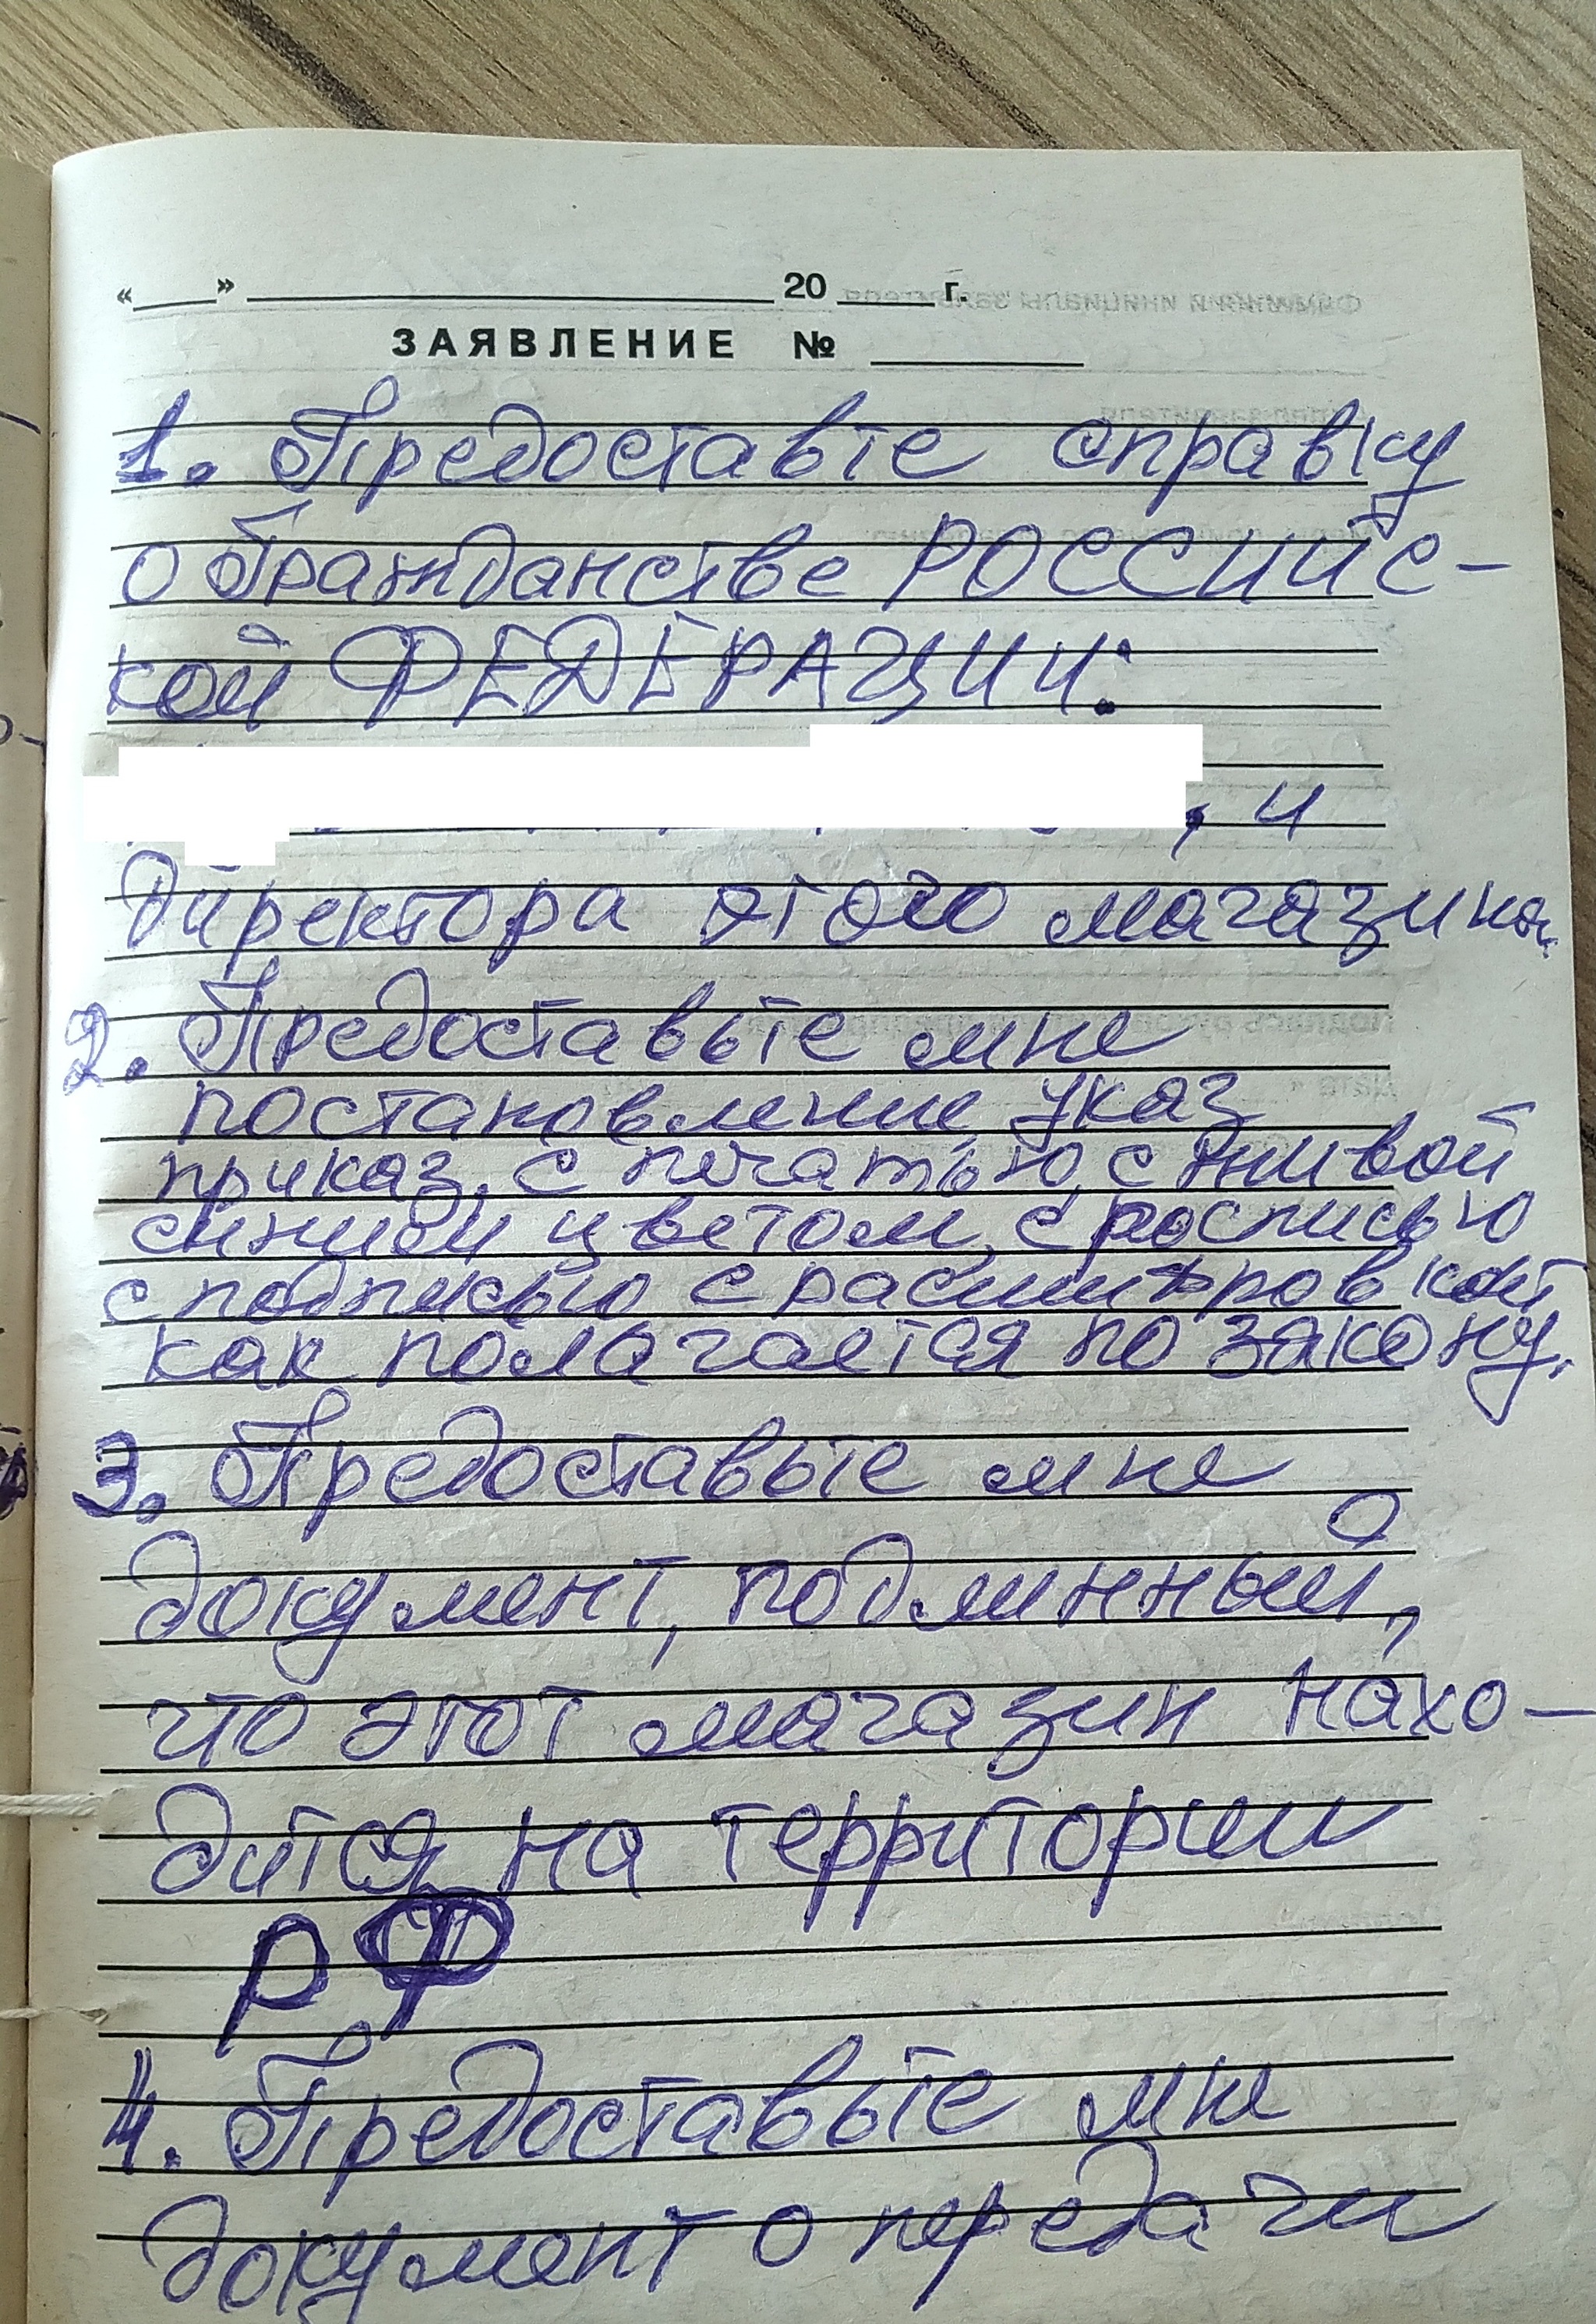 «___» ____________ 20 ____ г.
ЗАЯВЛЕНИЕ № ________
1. Предоставте справку
о Гражданстве РОССИЙС-
кой ФЕДЕРАЦИИ:
, и
директора этого магазина.
2. Предоставьте мне
постановление, указ
приказ, с печатью, с живой
синим цветом, с росписью
с подписью с расшифровкой
как полагается по закону.
3. Предоставьте мне
документ, подлинный,
что этот магазин нахо-
дится на территории
РФ
4. Предоставьте мне
документ о передачи